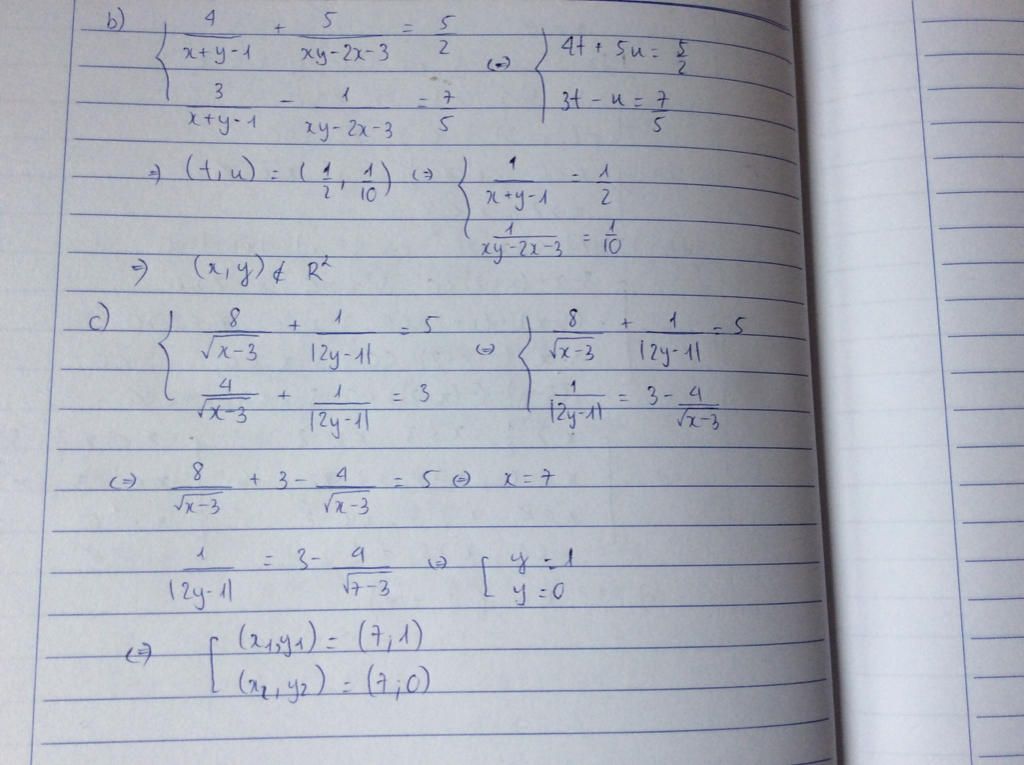 b) { 4/(x+y-1) + 5/(xy-2x-3) = 5/2 (=) { 4t + 5u = 5/2
3/(x+y-1) - 1/(xy-2x-3) = 7/5 3t - u = 7/5
=) (t,u) = (1/2, 1/10) (=) { 1/(x+y-1) = 1/2
1/(xy-2x-3) = 1/10
=) (x,y) ∉ R²
c) { 8/√(x-3) + 1/|2y-1| = 5 (=) { 8/√(x-3) + 1/|2y-1| = 5
4/√(x-3) + 1/|2y-1| = 3 1/|2y-1| = 3 - 4/√(x-3)
(=) 8/√(x-3) + 3 - 4/√(x-3) = 5 (=) x = 7
1/|2y-1| = 3 - 4/√(7-3) (=) [ y = 1
y = 0
(=) [ (x₁,y₁) = (7;1)
(x₂,y₂) = (7;0)